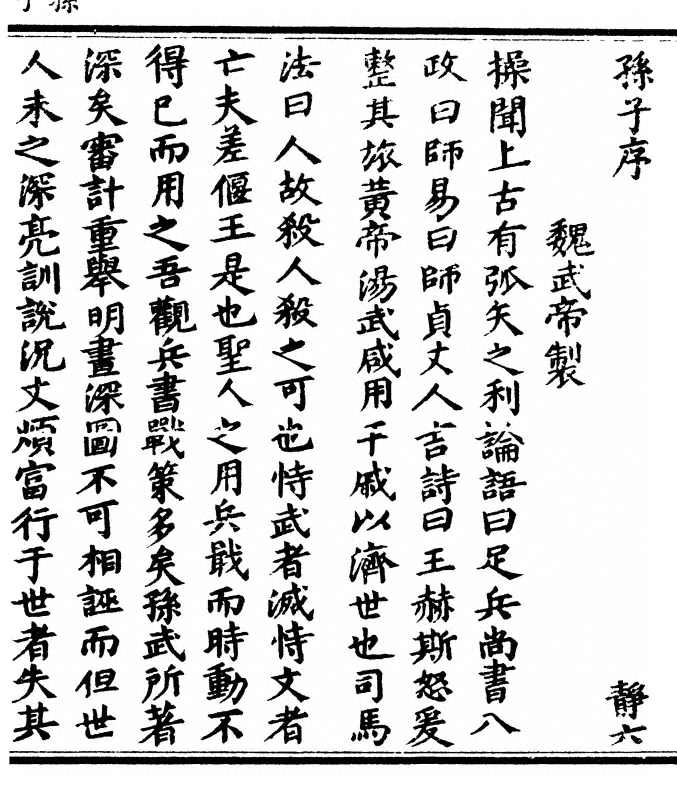 孫子序
靜六
魏武帝製
操聞上古有弧矢之利論語曰足兵尚書八
政曰師易曰師貞丈人吉詩曰王赫斯怒爰
整其旅黃帝湯武咸用干戚以濟世也司馬
法曰人故殺人殺之可也恃武者滅恃文者
亡夫差偃王是也聖人之用兵戢而時動不
得已而用之吾觀兵書戰策多矣孫武所著
深矣審計重舉明畫深圖不可相誣而但世
人未之深亮訓說況文煩富行于世者失其